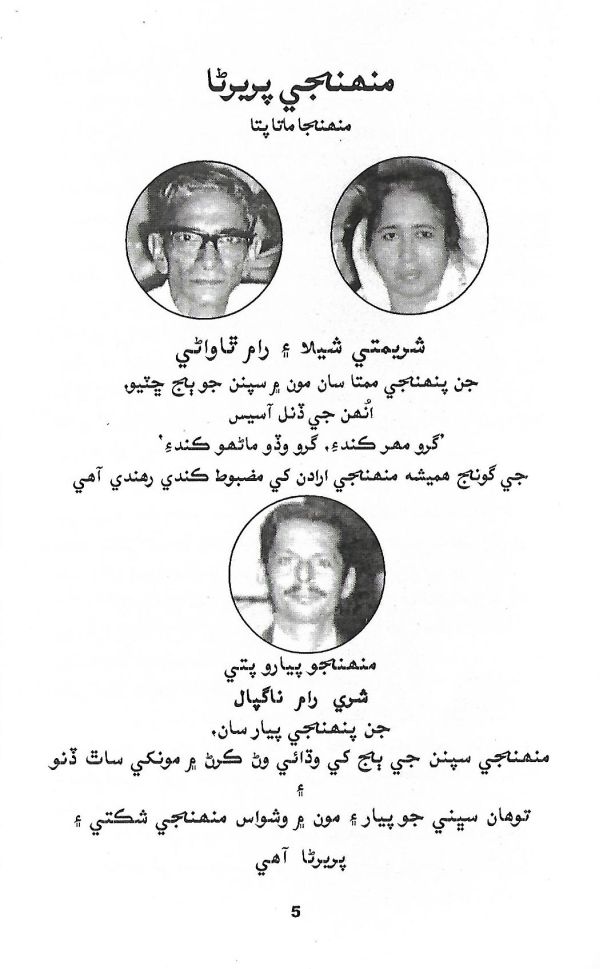 منهنجي پريرڻا
منهنجا ماتا پتا
شريمتي شيلا ۽ رام ٿاواڻي
جن پنهنجي ممتا سان مون ۾ سپنن جو ٻج ڇٽيو،
اُنهن جي ڏنل آسيس
'گرو مهر ڪندءِ، گرو وڏو ماڻهو ڪندءِ'
جي گونج هميشه منهنجي ارادن کي مضبوط ڪندي رهندي آهي
منهنجو پيارو پتي
شري رام ناگپال
جن پنهنجي پيار سان،
منهنجي سپنن جي ٻج کي وڌائي وڻ ڪرڻ ۾ مونکي ساٿ ڏنو
۽
توهان سڀني جو پيار ۽ مون ۾ وشواس منهنجي شڪتي ۽
پريرڻا آهي
5